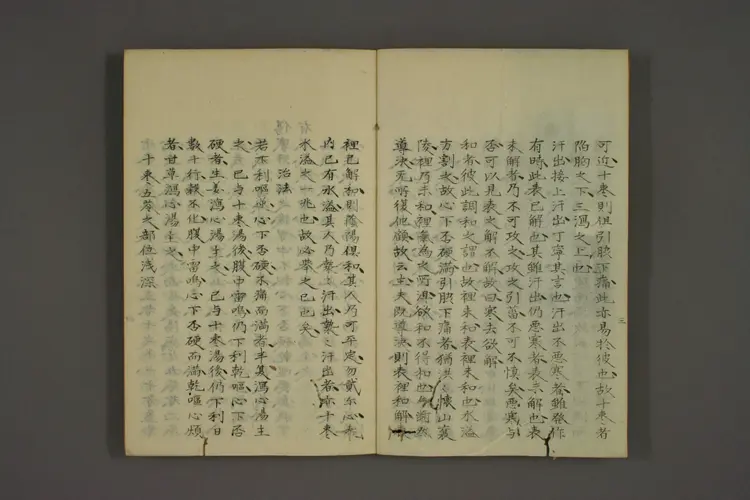 可近十棗則但引脇下痛此亦易於彼也故十棗者
陷胸之下三瀉之上也
汗出接上汗出丁寧其言也汗出不惡寒者雖發作
有時此表已解也其雖汗出仍惡寒者表未解也表
未解者乃不可攻之攻之引蓄不可不慎矣惡寒与
否可以見表之解不解故曰寒去欲解
和者彼此調和之謂也故裡未和表裡未和也水溢
方割之故心下否硬滿引脇下痛者猶洪水懷山襄
陵裡乃未和裡毒為之
導決无所復他顧故云主夫既導決則表裡和解
裡已解和則陰陽俱和其人乃可平定勿貳尓心乖
内已有水溢其人乃漐〻汗出漐〻汗出者亦十棗
水溢之一兆也故必舉之已也矣
治法
若不利嘔逆心下否硬不痛而滿者半夏瀉心湯主
之已与十棗湯後腹中雷鳴仍下利乾嘔心下否
硬者生姜瀉心湯主之已与十棗湯後仍下利日
數十行穀不化腹中雷鳴心下否硬而滿乾嘔心煩
者甘草瀉心湯主之
十棗五苓之部位浅深
三